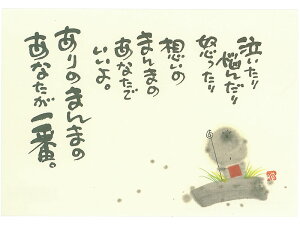 泣いたり
悩んだり
怒ったり
想いの
まんまの
あなたで
いいよ。
ありのまんまの
あなたが一番。